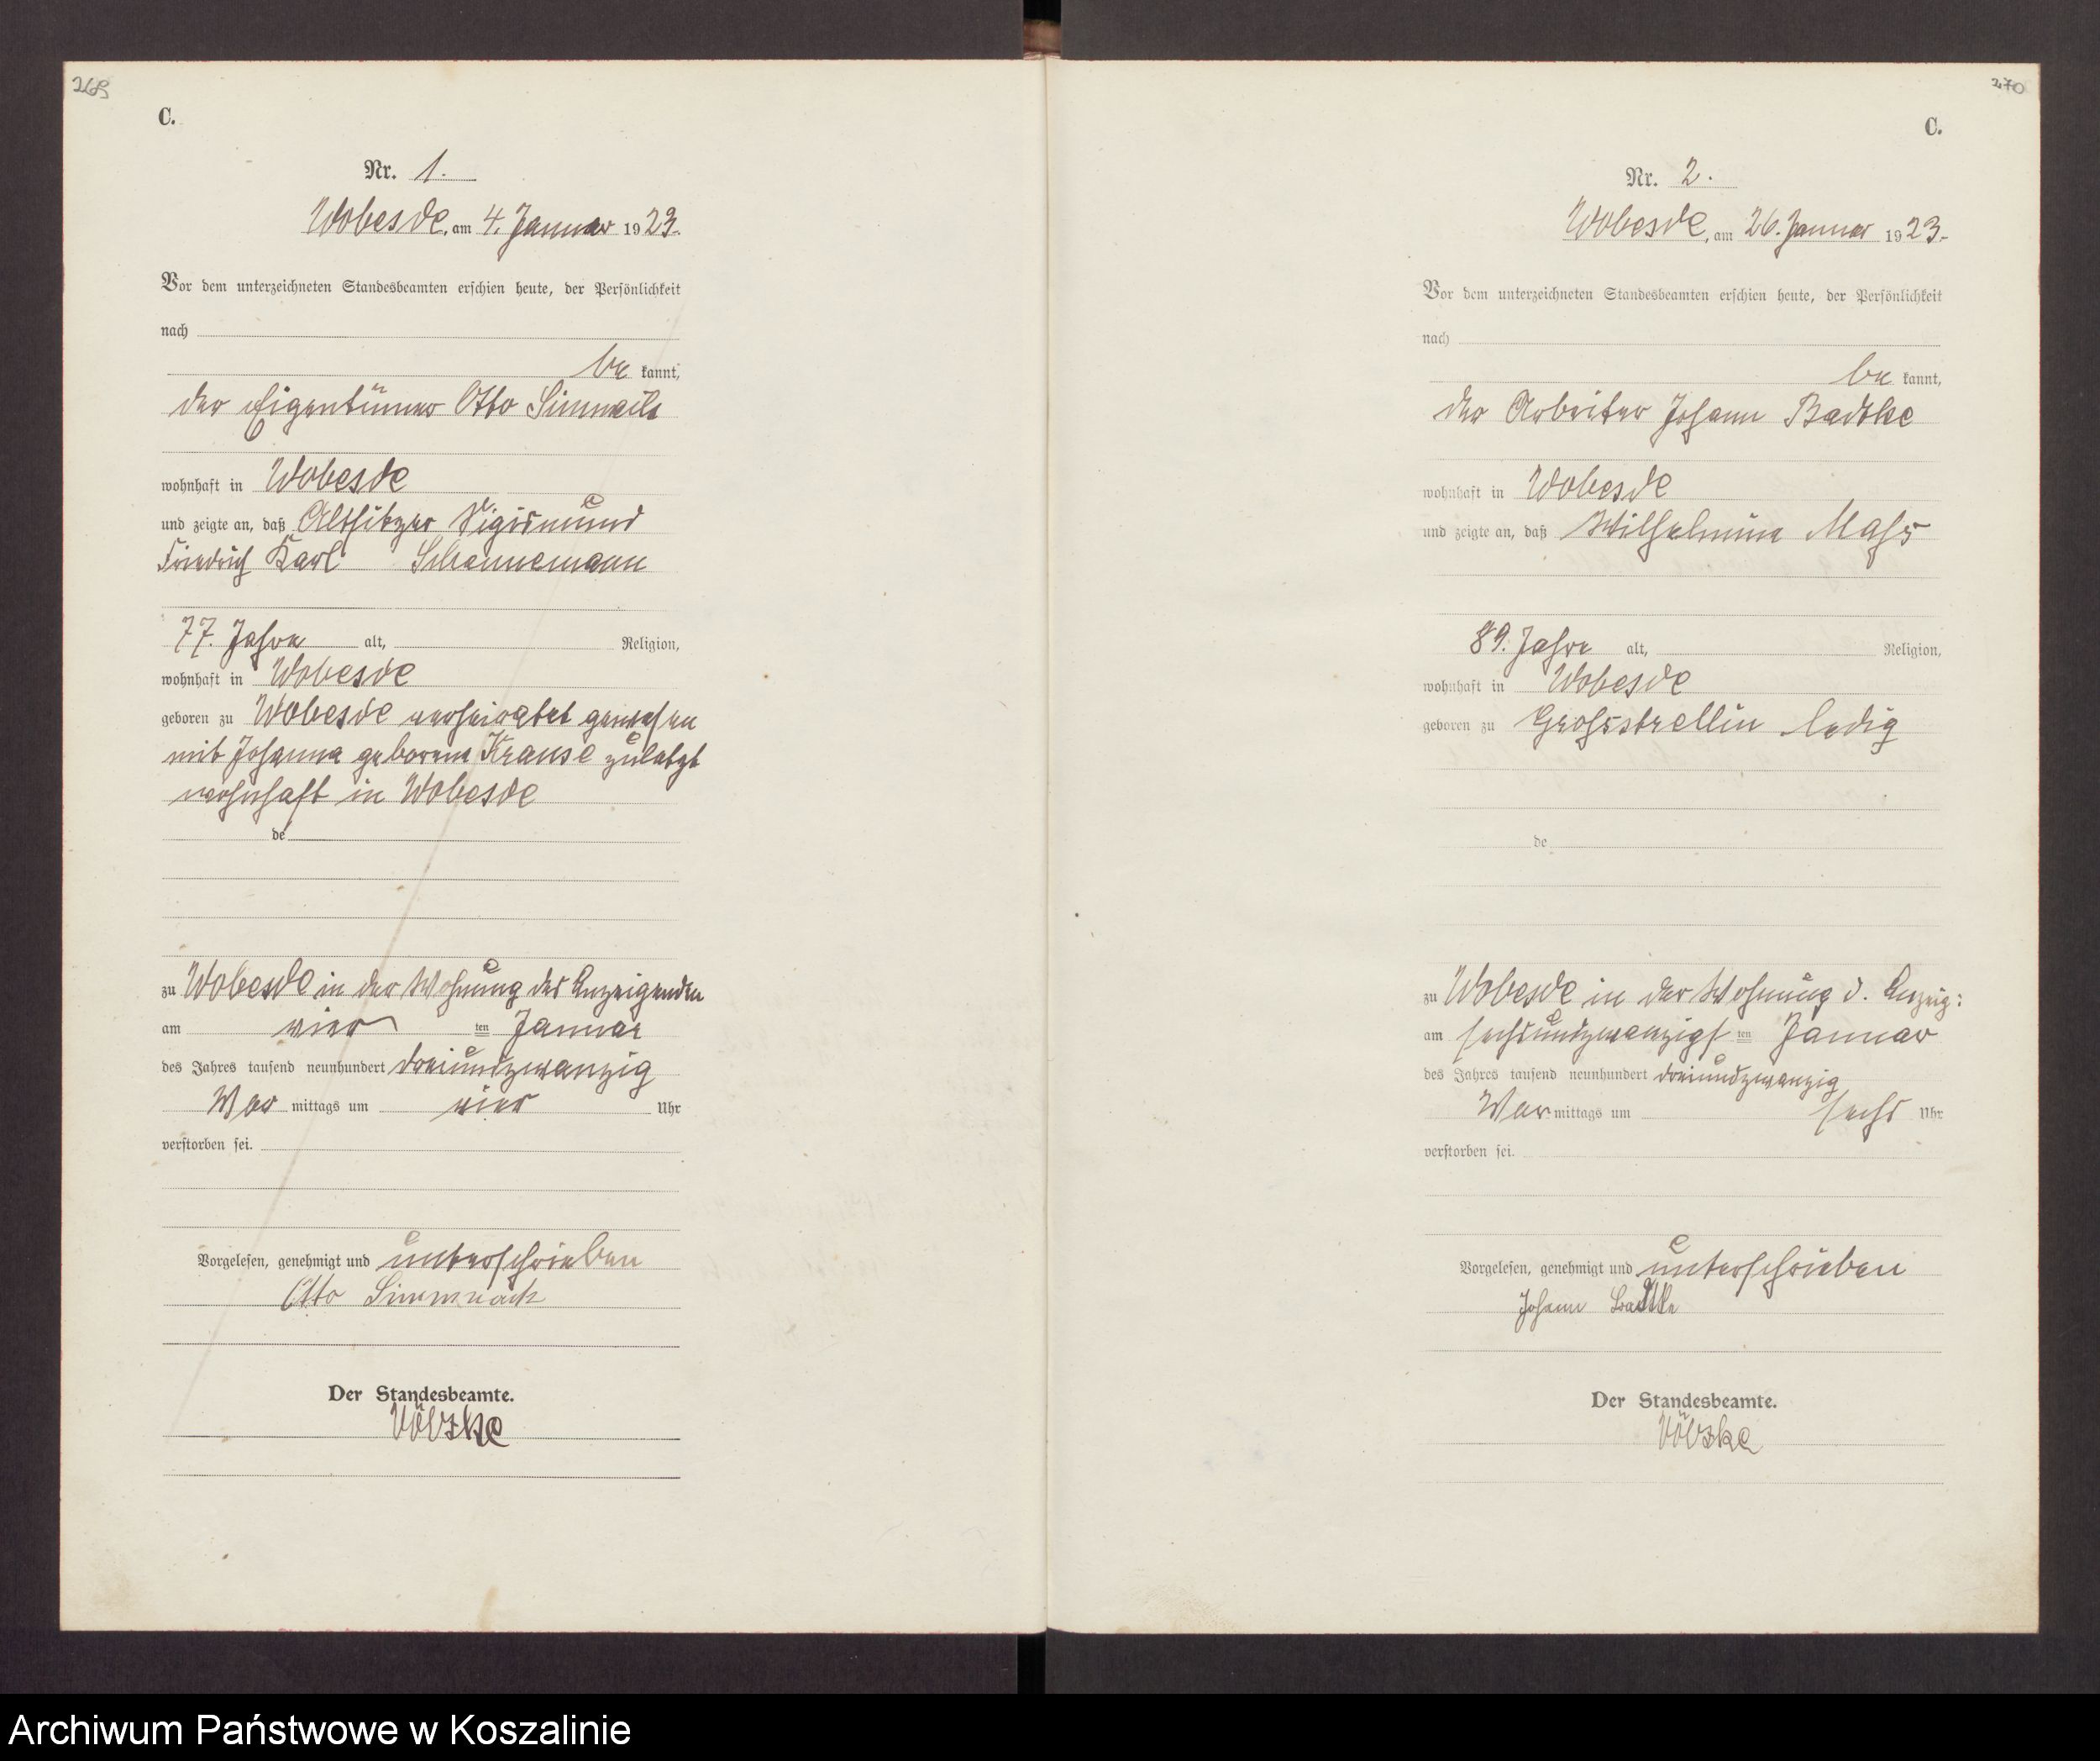 269
C.
Nr. 1.
Wobesde, am 4. Januar 1923.
Vor dem unterzeichneten Standesbeamten erschien heute, der Persönlichkeit
nach
be kannt,
der Eigentümer Otto
wohnhaft in Wobesde
und zeigte an, daß Altsitzer Sigismund
Friedrich Karl Schannemann
77. Jahre alt, Religion,
wohnhaft in Wobesde
geboren zu Wobesde verheiratet gewesen
mit Johanna geborene Krause zuletzt
wohnhaft in Wobesde
de
zu Wobesde in der Wohnung des Anzeigenden
am vier ten Januar
des Jahres tausend neunhundert dreiundzwanzig
Vor mittags um vier Uhr
verstorben sei.
Vorgelesen, genehmigt und unterschrieben
Otto Simmnack
Der Standesbeamte.
270
C.
Nr. 2.
Wobesde, am 26. Januar 1923.
Vor dem unterzeichneten Standesbeamten erschien heute, der Persönlichkeit
nach
be kannt,
der Arbeiter Johann Badtke
wohnhaft in Wobesde
und zeigte an, daß Wilhelmine Mass
89. Jahre alt, Religion,
wohnhaft in Wobesde
geboren zu Grossstrellin ledig
de
zu Wobesde in der Wohnung d. Anzeig:
am sechsundzwanzigs ten Januar
des Jahres tausend neunhundert dreiundzwanzig
Vor mittags um sechs Uhr
verstorben sei.
Vorgelesen, genehmigt und unterschrieben
Johann Badtke
Der Standesbeamte.
Archiwum Państwowe w Koszalinie